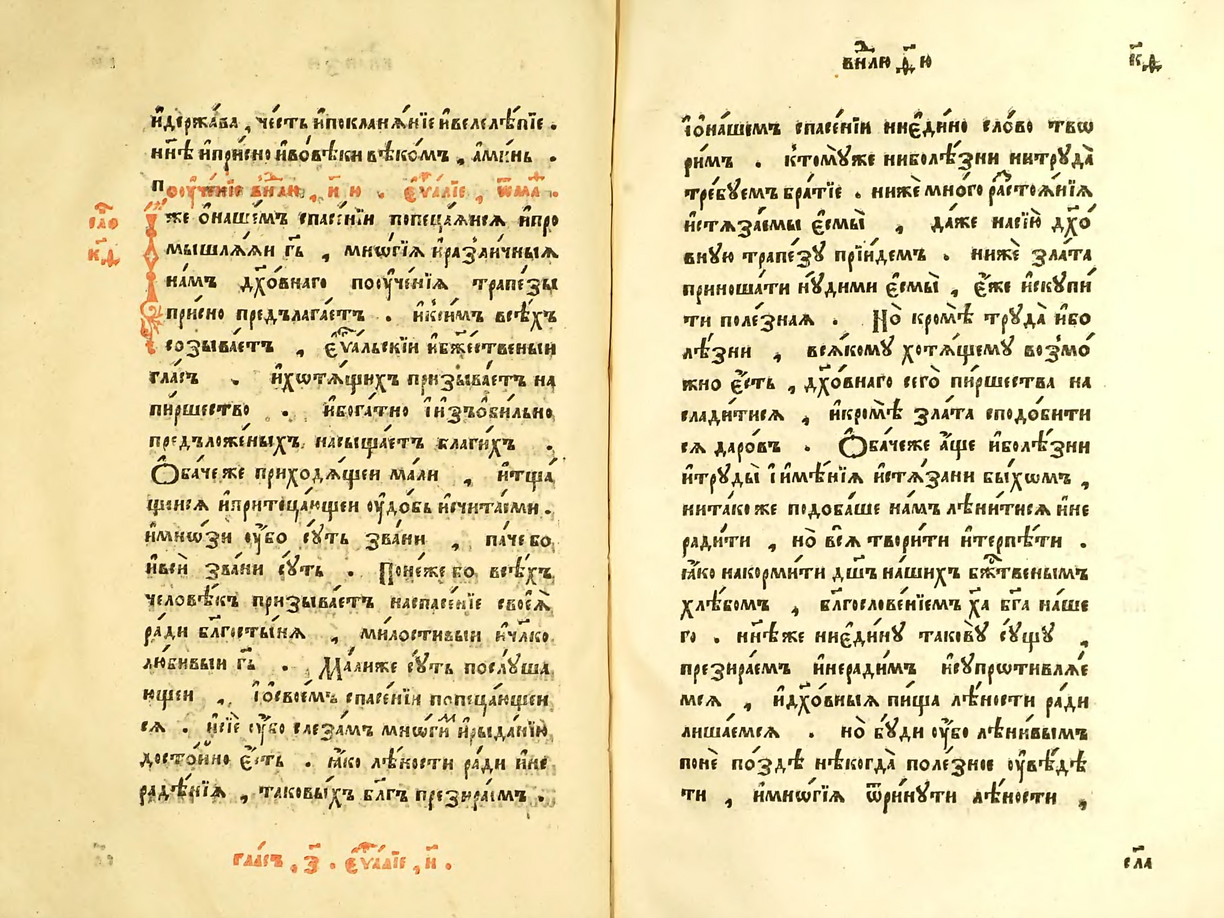 и҆держа́ва , че́сть и҆покланѧ́нїе и҆велелѣ́пїе .
нн҃ѣ и҆при́сно и҆вовѣ́ки вѣко́мъ , а҆ми́нь .
поуче́нїе внлю , и҃ ю . є҆ѵⷢ҇а́лїе , ѿма
сло
к҃д
И҆же ѻ҆на́шемъ спасе́нїи попеца́ѧисѧ и҆про
мышлѧ́ѧи гь҃ , мно́гїѧ и҆разли́чныѧ
на́мъ дх҃о́внаго поꙋче́нїѧ трапе́зы
при́сно предълага́етъ . и҆ки́имъ всѣ́хъ
созыва́етъ , є҆ѵⷢ҇а́льскїи и҆бж҃е́ственыи
гла́съ . и҆хѡтѧ́щихъ призыва́етъ на
пи́ршество . и҆бога́тно і҆и҆зъѻби́льно
предъложе́ныхъ насыща́етъ благи́хъ .
Ѻ҆ба́че же приходѧ́щеи ма́ли , и҆тща́
щиисѧ и҆притеца́ющеи оу҆до́бь и҆счита́еми .
и҆мно́зи оу҆́бо сꙋ́ть зва́ни , па́че бо
и҆вси́ зва́ни сꙋ́ть . Поне́же бо всѣ́хъ
человѣ́къ призыва́етъ наспасе́нїе своеѧ̀
ра́ди блг҃осты́нѧ , ми́лостивыи и҆чл҃ко
любивыи гь҃ . Ма́лиже сꙋ́ть послꙋ́ша
ющеи , і҆ѻ҆свое́мъ спасе́нїи попеца́ющеи
сѧ . и҆сїѐ оу҆́бо слеза́мъ мно́гимъ и҆рыда́нїю
досто́йно є҆́сть . ꙗ҆́ко лѣ́ности ра́ди и҆не
радѣ́нїѧ , таковы́хъ бл҃гъ презира́имъ .
гла́съ , з҃ . є҆ѵⷢ҇а́лїе , и҃ .
внлю д҃ ю
к҃д
і҆ѻ҆на́шемъ спасе́нїи ниє҆ди́но сло́во твѡ
ри́мъ . ктомꙋ́же ниболѣ́зни нитрꙋда̀
тре́бꙋемъ бра́тїе . нижѐ мно́го растоѧ́нїѧ
и҆стѧза́емы є҆смы̀ , да́же насїю̀ дх҃о́
внꙋю трапе́зꙋ прїи́демъ . нижѐ зла́та
приноша́ти нꙋ́дими є҆смы̀ , є҆́же и҆скꙋпи́
ти поле́знаѧ . Но̀ кромѣ̀ трꙋда̀ и҆бо
лѣ́зни , всѧ́комꙋ хотѧ́щемꙋ возмо́
жно є҆́сть , дх҃о́внаго сего̀ пи́ршества на
слади́тисѧ , и҆кромѣ̀ зла́та сподо́бити
сѧ даро́въ . Ѻ҆ба́чеже а҆́ще и҆болѣ́зни
и҆трꙋды̀ і҆и҆мѣ́нїѧ и҆стѧ́зани бы́хѡмъ ,
нитако же подоба́ше на́мъ лѣни́тисѧ и҆не
ради́ти , но̀ всѧ твори́ти и҆терпѣ́ти .
ꙗ҆́ко накорми́ти дш҃ъ на́шихъ бж҃твенымъ
хлѣ́бомъ , блг҃ослове́нїемъ хаⷭ҇ бг҃а на́ше
го . нн҃ѣже ниє҆ди́нꙋ такову̀ сꙋ́щꙋ ,
презира́емъ и҆неради́мъ и҆сꙋпроти́влѧе
мсѧ , и҆дх҃о́вныѧ пи́ща лѣ́ности ра́ди
лиша́емсѧ . но̀ бꙋ́ди оу҆́бо лѣни́вымъ
понѐ по́здѣ нѣ́когда̀ поле́зное оу҆вѣ́дѣ
ти , и҆мно́гїѧ ѿри́нꙋти лѣ́ности ,
сла